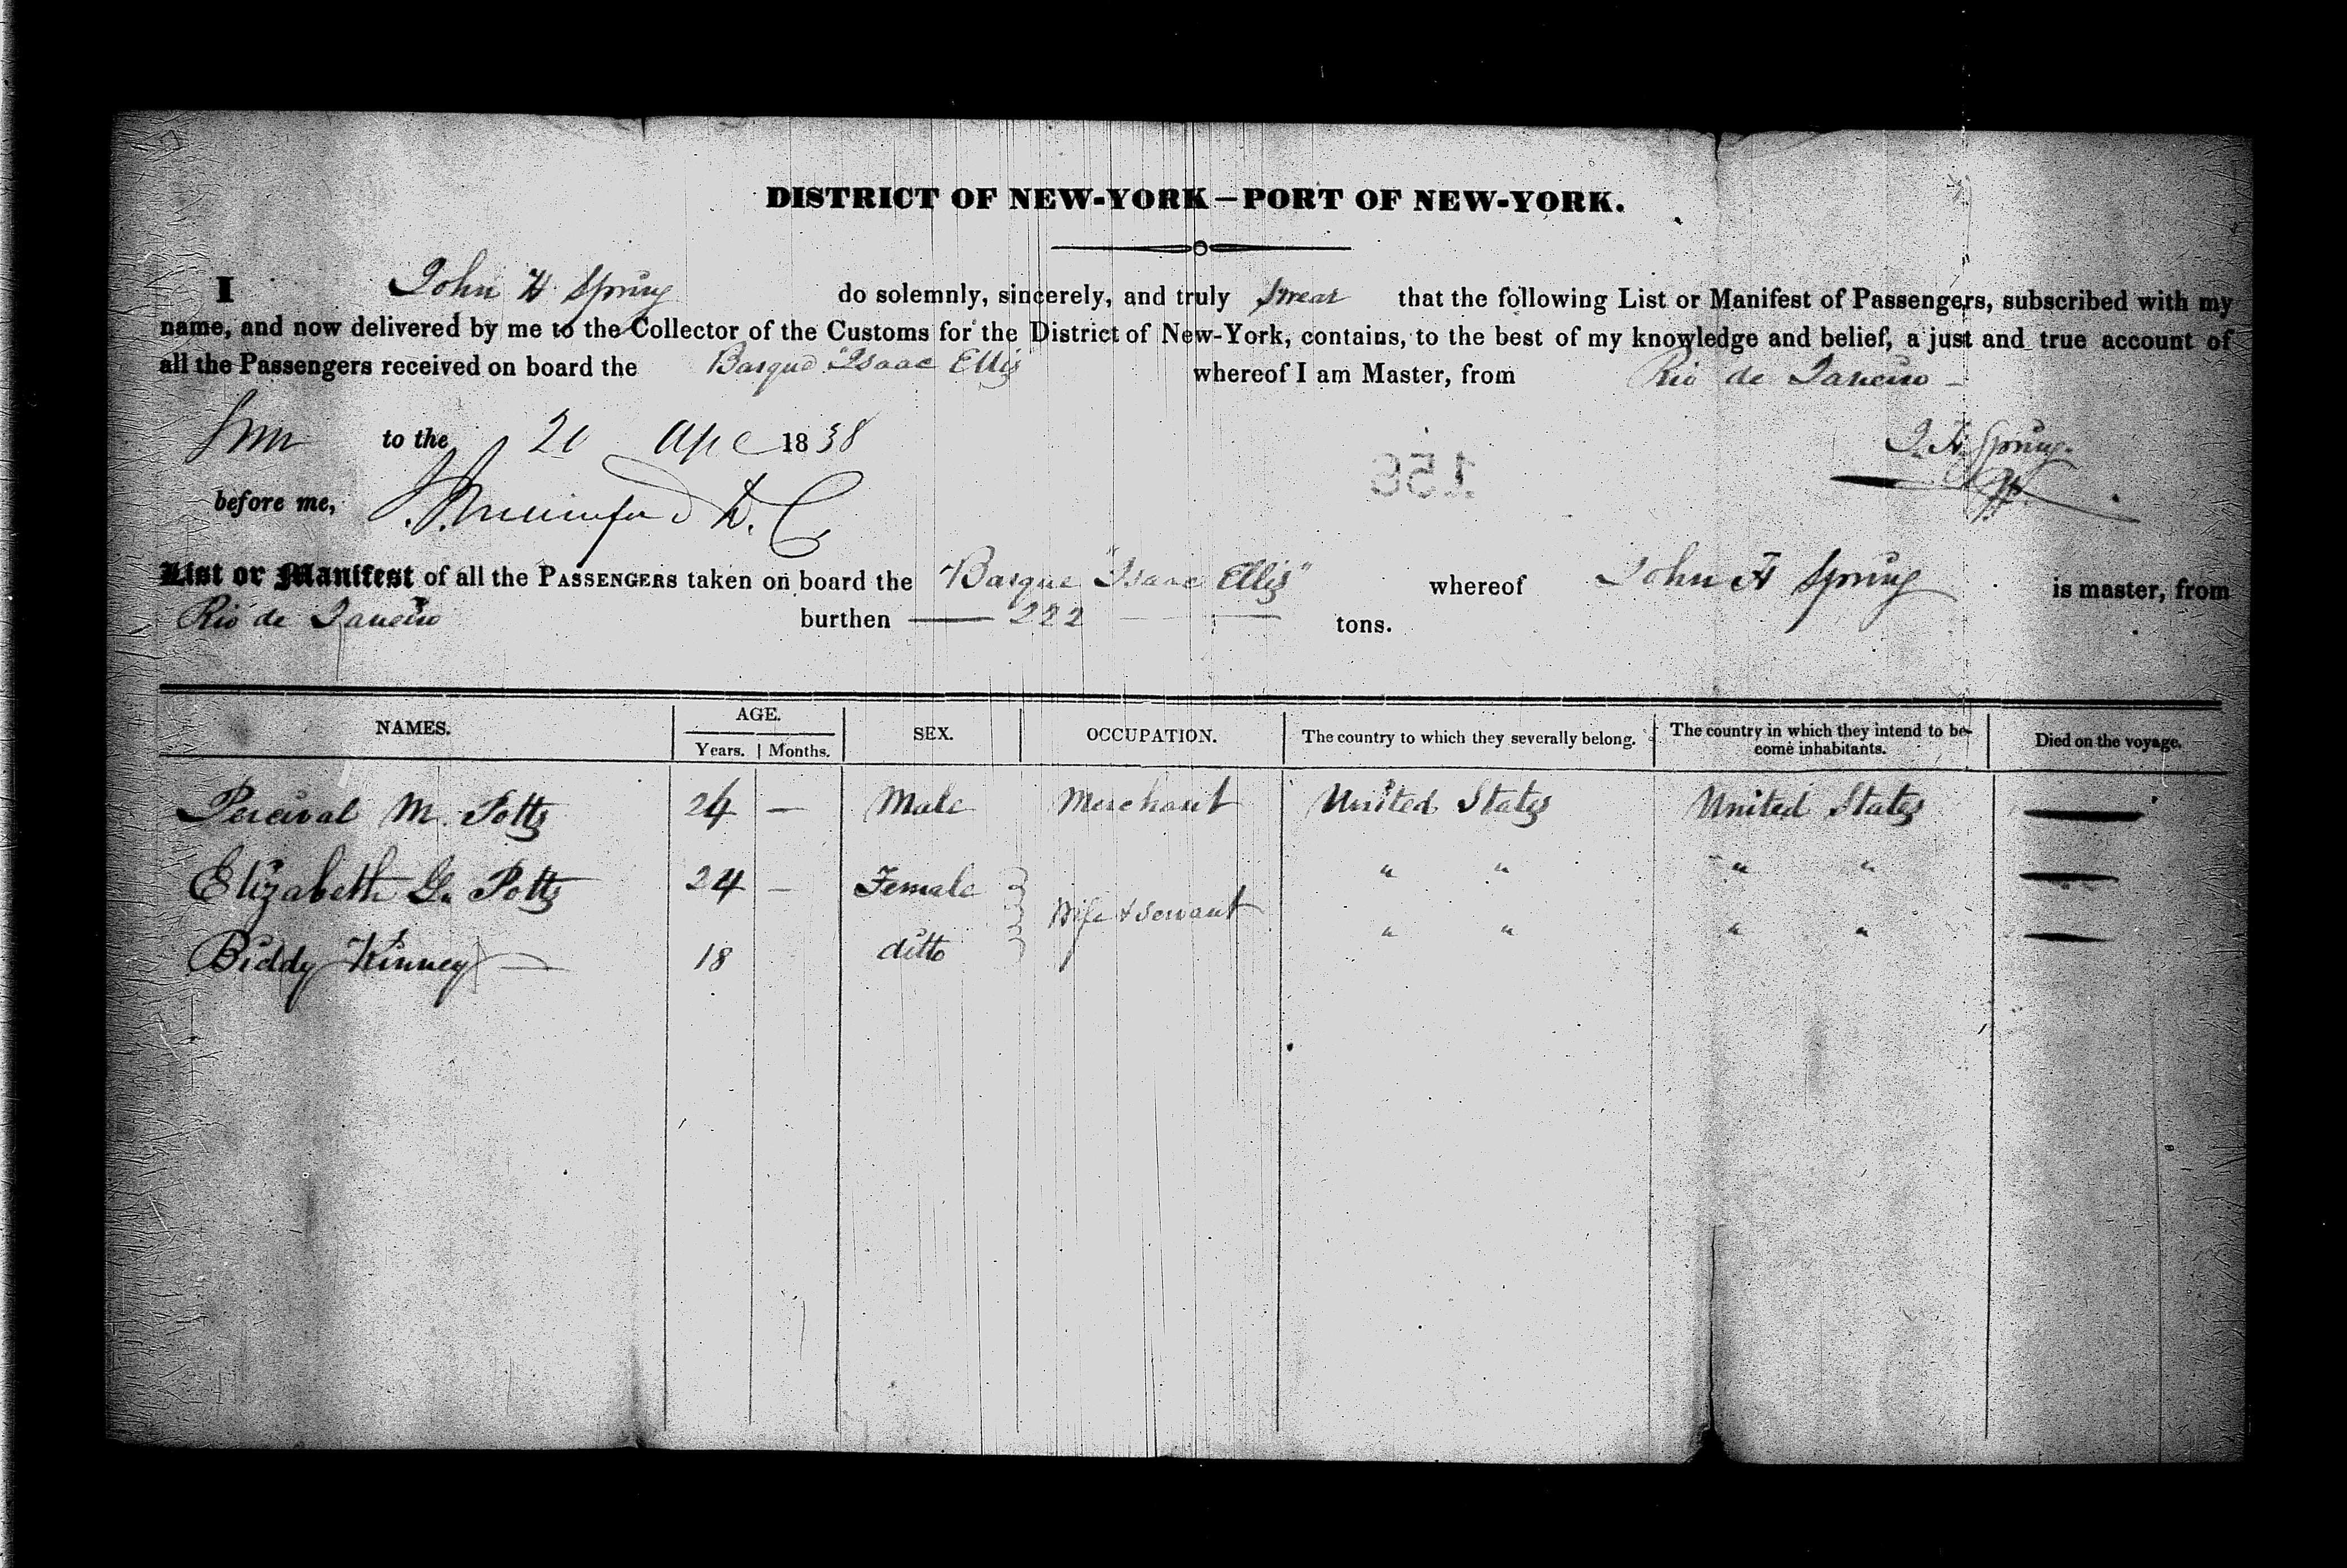 DISTRICT OF NEW-YORK—PORT OF NEW-YORK.
I John H Spring do solemnly, sincerely, and truly swear that the following List or Manifest of Passengers, subscribed with my
name, and now delivered by me to the Collector of the Customs for the District of New-York, contains, to the best of my knowledge and belief, a just and true account of
all the Passengers received on board the Barque "Isaac Ellis whereof I am Master, from Rio de Janeiro -
to the 1838 J. H. Spring.
before me, D. C.
156
List or Manifest of all the PASSENGERS taken on board the "Barque "Isaac Ellis" whereof John H Spring is master, from
Rio de Janeiro burthen — 222 — tons.
NAMES. AGE. SEX. OCCUPATION. The country to which they severally belong. The country in which they intend to be-
come inhabitants. Died on the voyage.
Years. Months.
Percival M. Potts 24 — Male Merchant United States United States —
Elizabeth G. Potts 24 — Female } Wife & Servant " " " " —
Biddy Kinney — 18 ditto " " " " —